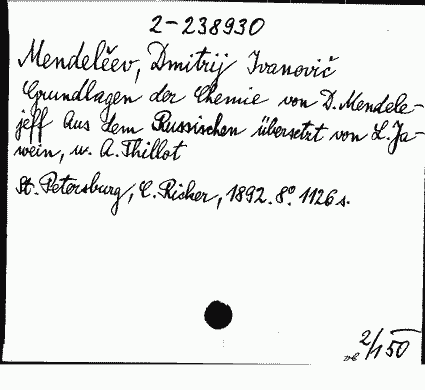 2-238930
Mendelěev, Dmitrij Ivanovič
Grundlagen der Chemie von D. Mendele-
jeff Aus dem Russischen übersetzt von L. Ja-
wein, u. A. Thillot
St. Petersburg, C. Ricker, 1892. 8º. 1126 s.
2/1 50